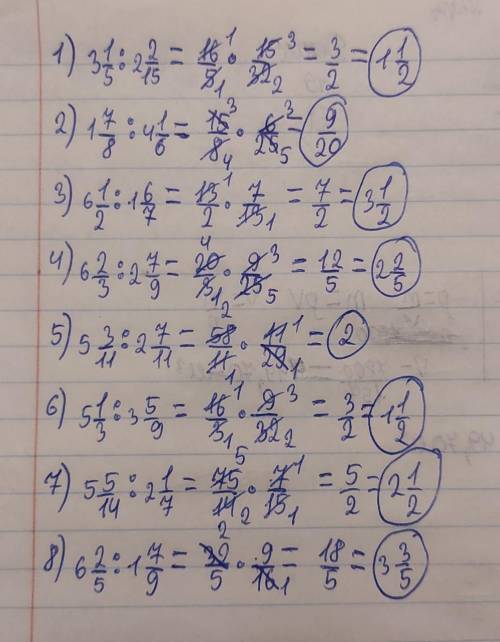 1) 3 1/5 : 2 2/15 = 16/5 · 15/32 = 3/2 = 1 1/2
2) 1 7/8 : 4 1/6 = 15/8 · 6/25 = 9/20
3) 6 1/2 : 1 6/7 = 13/2 · 7/13 = 7/2 = 3 1/2
4) 6 2/3 : 2 7/9 = 20/3 · 9/25 = 12/5 = 2 2/5
5) 5 3/11 : 2 7/11 = 58/11 · 11/29 = 2
6) 5 1/3 : 3 5/9 = 16/3 · 9/32 = 3/2 = 1 1/2
7) 5 5/14 : 2 1/7 = 75/14 · 7/15 = 5/2 = 2 1/2
8) 6 2/5 : 1 7/9 = 32/5 · 9/16 = 18/5 = 3 3/5